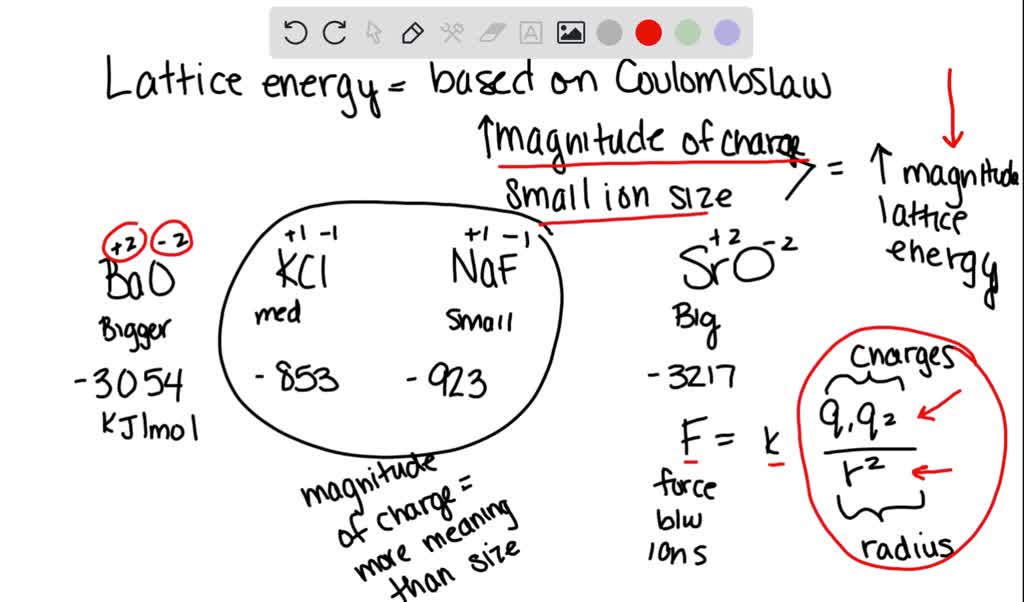 Lattice energy = based on Coulombslaw
↑magnitude of charge
small ion size
= ↑ magnitude
lattice
energy
+2 -2
BaO
Bigger
-3054
KJ/mol
+1 -1
KCl
med
-853
+1 -1
NaF
small
-923
magnitude
of charge =
more meaning
than size
+2 -2
SrO
Big
-3217
F = k q1q2
r²
force
blw
ions
charges
radius
A